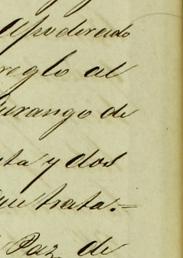 Apoderado
reglo al
Durango de
nta y dos
que trata.=
Paz de